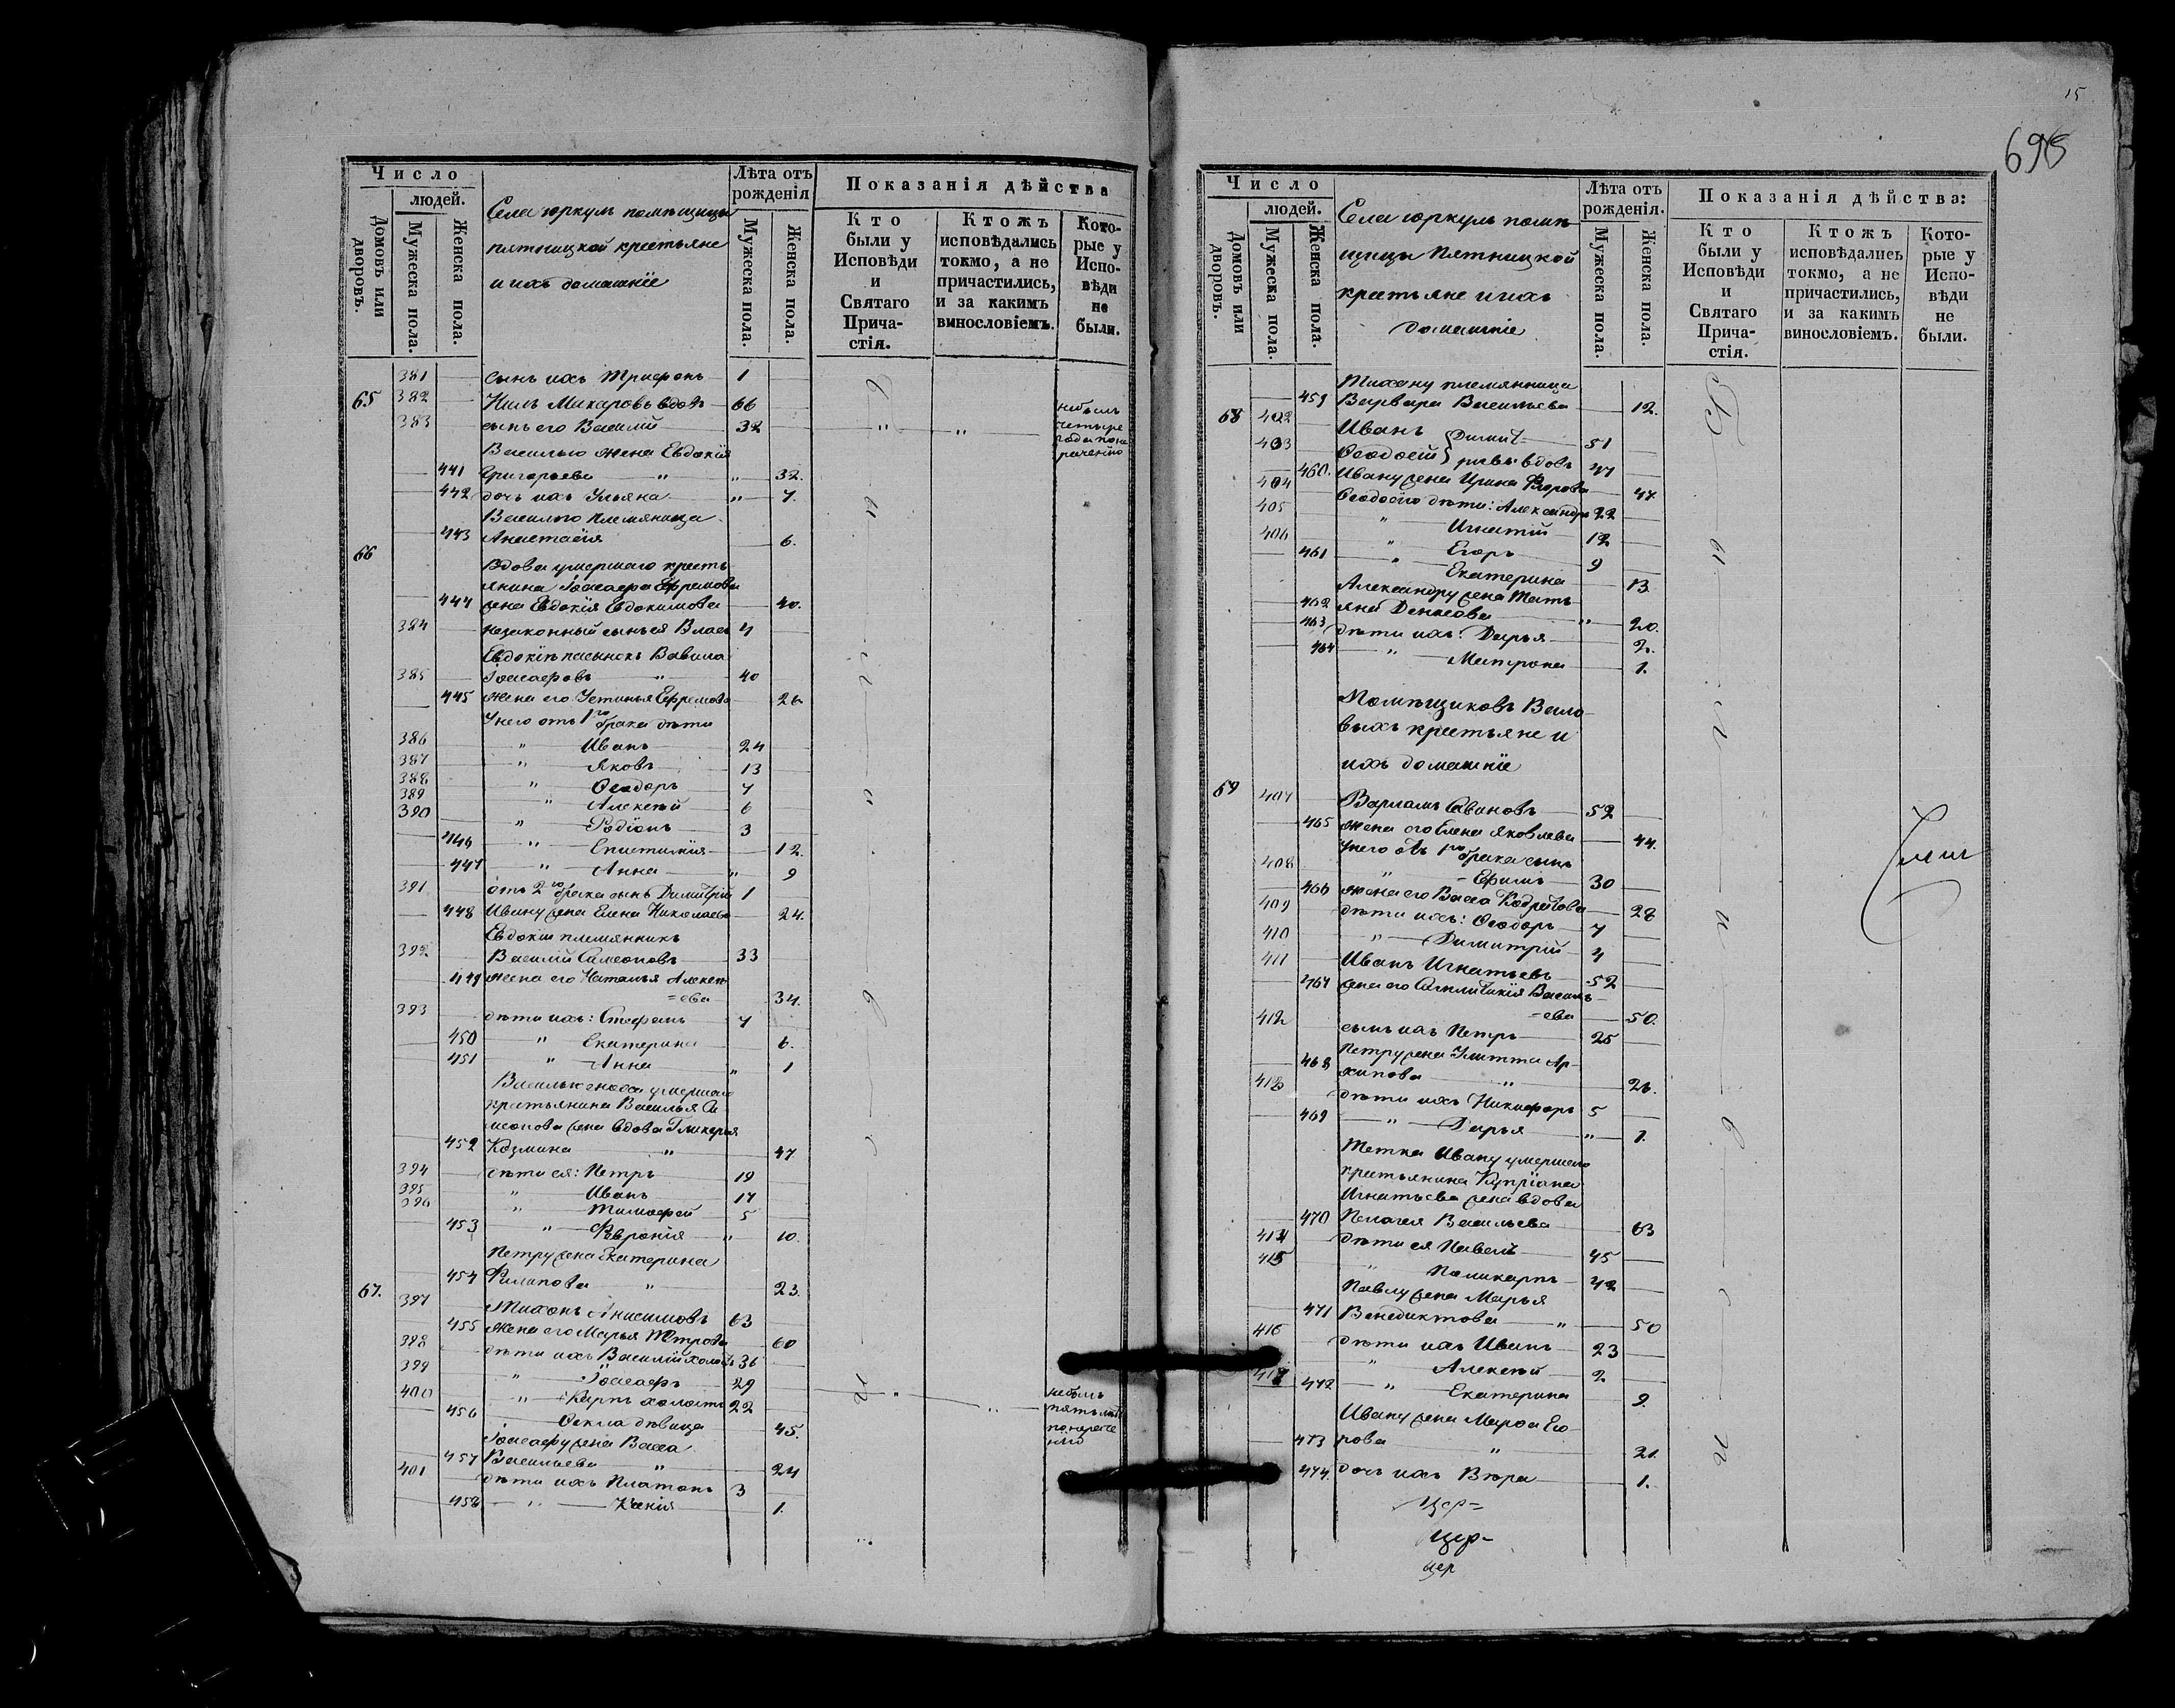 Число
людей.
Домовъ или дворовъ.
Мужеска пола.
Женска пола.
Села Юркуль помѣщицы
пятницкой крестьяне
и ихъ домашніе
Лѣта отъ
рожденія
Мужеска пола.
Женска пола.
Показанія дѣйства
Кто
были у
Исповѣди
и
Святаго
Прича-
стія.
Ктожъ
исповѣдались
токмо, а не
причастились,
и за какимъ
винословіемъ.
Кото-
рые у
Испо-
вѣди
не
были.
381 сынъ ихъ Трифонъ 1
65 382 Нилъ Макаровъ вдовъ 66
383 сынъ его Василій 32 " "
небылъ
четыре
года по не
раченію
Василью жена Евдокія
441 Григорьева " " 32.
442 дочь ихъ Ульяна " 7.
Василью племяница
443 Анастасія 6.
66 Вдова умершаго кресть
янина Іоасафа Ефремова
444 жена Евдокія Евдокимова 40.
384 незаконный сынъ ея Власъ 4
Евдокіи пасынокъ Вавила
385 Іоасафовъ " 40
445 жена его Устинья Ефремова 26
У него отъ 1го брака дѣти
386 " Иванъ 24
387 " Яковъ 13
388 " Ѳеодоръ 7
389 " Алексѣй 6
390 " Родіонъ 3
446 " Епистимія 12.
447 " Анна " 9
391 отъ 2го брака сынъ Димитрій 1
448 Ивану жена Елена Николаева 24.
Евдокіи племянникъ
392 Василій Симеоновъ 33
449 жена его Наталья Алексѣ
=ева 34.
393 дѣти ихъ: Стефанъ 7
450 " Екатерина 6.
451 " Анна " 1
Василью сноха умершаго
крестьянина Василья Си
меонова жена вдова Гликерья
452 Козмина " 47
394 дѣти ея: Петръ 19
395 " Иванъ 17
396 " Тимофей 5
453 " Февронія " 10.
Петру жена Екатерина
454 Филипова " 23.
67. 397 Тихонъ Анисимовъ 63
455 жена его Марья Петрова 60
398 дѣти ихъ Василій холостъ 36
399 " Іоасафъ 29
400 " Карпъ холостъ 22 " "
небылъ
пять лѣтъ
по нераче
нію
456 Ѳекла дѣвица 45.
Іоасафу жена Васса
457 Васильева " 24
401 дѣти ихъ Платонъ 3
458 " Ксенія 1.
15
695
Число
людей.
Домовъ или дворовъ.
Мужеска пола.
Женска пола.
Села Юркуль помѣ
щицы Пятницкой
крестьяне и ихъ
домашніе
Лѣта отъ
рожденія.
Мужеска пола.
Женска пола.
Показанія дѣйства:
Кто
были у
Исповѣди
и
Святаго
Прича-
стія.
Ктожъ
исповѣдались
токмо, а не
причастились,
и за какимъ
винословіемъ.
Кото-
рые у
Испо-
вѣди
не
были.
Тихону племянница
459 Варвара Васильева 12.
68 402 Иванъ Димит 51
403 Ѳеодосій ріевы вдовъ 47
460. Ивану жена Ирина Флорова 47.
404 Ѳеодосію дѣти: Александръ 22
405 " Игнатій 12
406 " Егоръ 9
461 " Екатерина 13.
Александру жена Тать
462 яна Денисова " 20.
463 дѣти ихъ: Дарья 2.
464 " Матрона 1.
Помѣщиковъ Вало
выхъ крестьяне и
ихъ домашніе
69 407 Варламъ Савиновъ 52
465 жена его Елена Яковлева 44.
У него отъ 1го брака сынъ
408 " Ефимъ 30
466 жена его Васса Кодратова 28
409 дѣти ихъ: Ѳеодоръ 7
410 " Димитрій 4
411 Иванъ Игнатьевъ 52
467 жена его Синклитикія Василь
=ева 50.
412 сынъ ихъ Петръ 25
Петру жена Улитта Ар
468 хипова " 26.
413 дѣти ихъ Никифоръ 5
469 " Дарья " 1.
Тетка Ивану умершаго
крестьянина Купріана
Игнатьева жена вдова
470 Пелагея Васильева 63
414 дѣти ея Павелъ 45
415 " Поликарпъ 42
Павлу жена Марья
471 Венедиктова " 50
416 дѣти ихъ Иванъ 23
417 " Алексѣй 2
472 " Екатерина 9.
Ивану жена Марѳа Его
473 рова " 21.
474. дочь ихъ Вѣра 1.